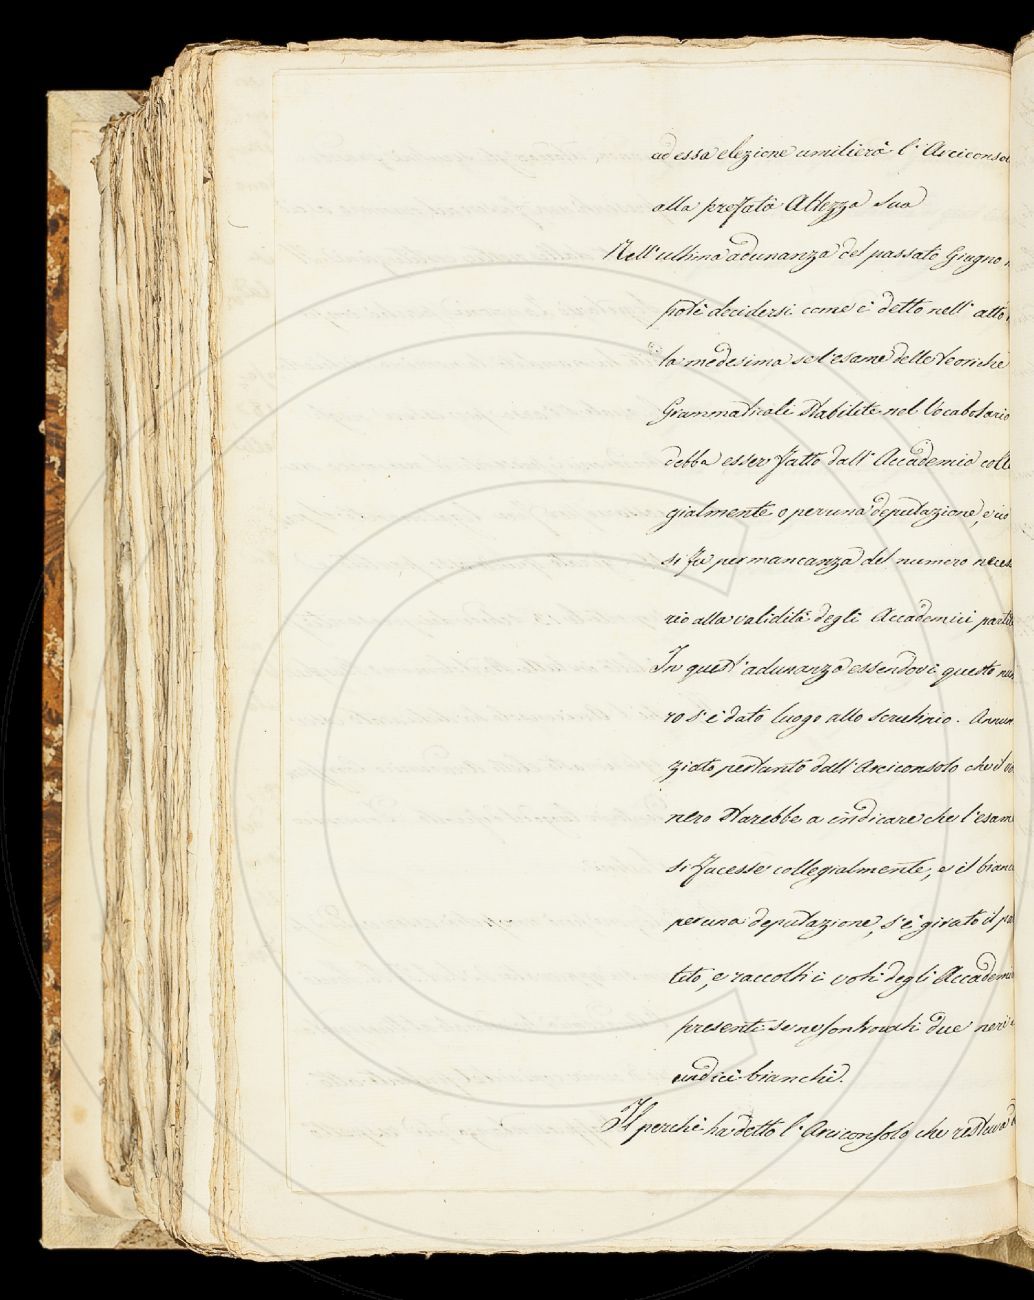 ad essa elezione umilierà l'Arciconso
alla prefata Altezza Sua
Nell'ultima adunanza del passato Giugno
potè decidersi come è detto nell'atto
la medesima se l'esame delle teoriche
Grammaticali stabilite nel Vocabolario
debba esser fatto dall'Accademia colle
gialmente o per una deputazione, e ciò
si fu per mancanza del numero neces
rio alla validità degli Accademici partiti
In quest'adunanza essendovi questo
ro s'è dato luogo allo scrutinio. Annun
ziato pertanto dall'Arciconsolo che il vo
nero starebbe a indicare che l'esame
si facesse collegialmente, e il bianc
per una deputazione, s'è girato il pa
tito, e raccolti i voti degli Accademi
presenti se ne son trovati due neri
undici bianchi.
Il perchè ha detto l'Arciconsolo che restava